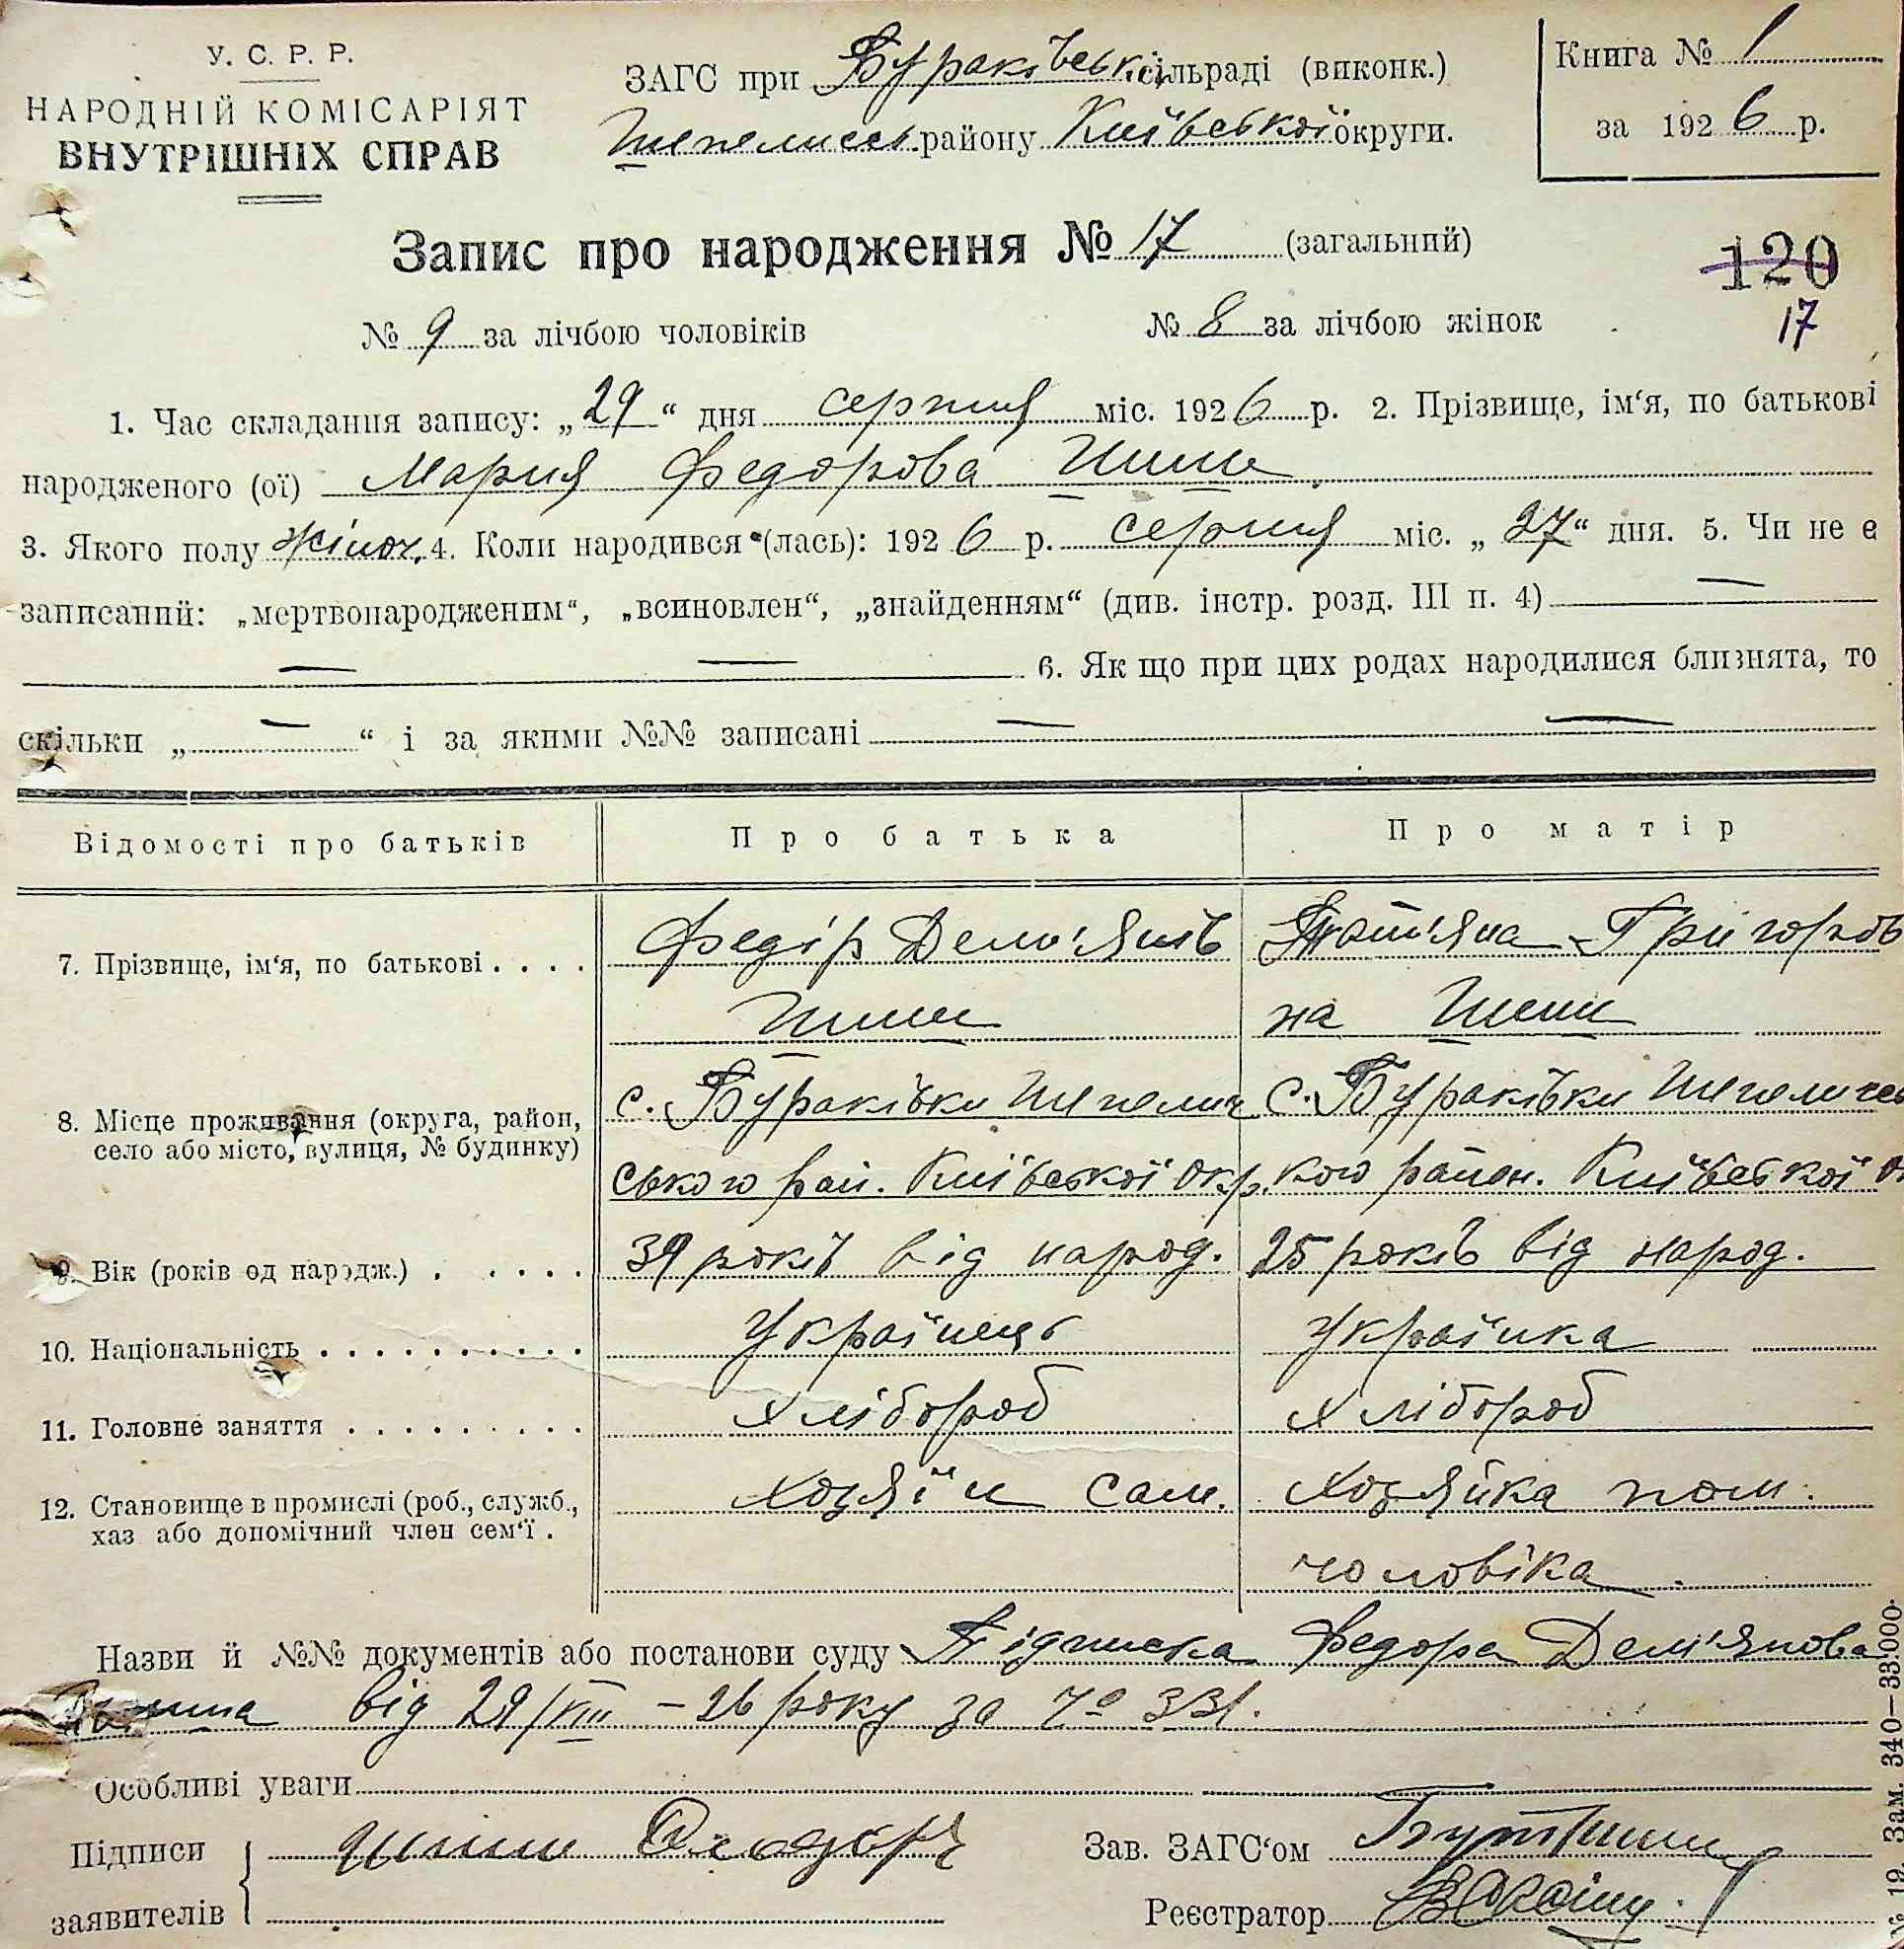 У. С. Р. Р.
НАРОДНІЙ КОМІСАРІЯТ
ВНУТРІШНІХ СПРАВ
ЗАГС при Бураківськ. сільраді (виконк.)
Шепелицьк. району Київської округи.
Книга № 1
за 1926 р.
Запис про народження № 17 (загальний)
120
17
№ 9 за лічбою чоловіків № 8 за лічбою жінок
1. Час складання запису: „29“ дня серпня міс. 1926 р. 2. Прізвище, ім‘я, по батькові
народженого (ої) Мария Федорова Шиш
3. Якого полу жіноч. 4. Коли народився (лась): 1926 р. серпня міс. „27“ дня. 5. Чи не є
записаний: „мертвонародженим“, „всиновлен“, „знайденням“ (див. інстр. розд. III п. 4) —
— — 6. Як що при цих родах народилися близнята, то
скільки „—“ і за якими №№ записані — —
Відомості про батьків Про батька Про матір
7. Прізвище, ім‘я, по батькові . . . . Федір Дем'янів Тат'яна Григоров
Шиш на Шиш
8. Місце проживання (округа, район, с. Бураківки Шепелич с. Бураківки Шепеличсь
село або місто, вулиця, № будинку)
ського рай. Київської окр. кого район. Київської ок
9. Вік (років од народж.) . . . . . 39 років від народ. 25 років від народ.
10. Національність . . . . . . . . . . Українець Українка
11. Головне заняття . . . . . . . . . Хлібороб Хлібороб
12. Становище в промислі (роб., служб., Хозяїн сам. Хозяйка пом.
хаз або допомічний член сем‘ї .
чоловіка
Назви й №№ документів або постанови суду Підписка Федора Дем'янова
Шиша від 29/VIII – 26 року за № 331.
Особливі уваги
Підписи Шиш Зав. ЗАГС‘ом
заявителів Реєстратор
№ 19. Зам. 340—33.000.